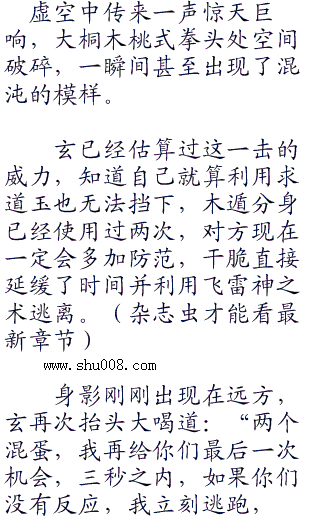 虚空中传来一声惊天巨
响，大桐木桃式拳头处空间
破碎，一瞬间甚至出现了混
沌的模样。
玄已经估算过这一击的
威力，知道自己就算利用求
道玉也无法挡下，木遁分身
已经使用过两次，对方现在
一定会多加防范，干脆直接
延缓了时间并利用飞雷神之
术逃离。（杂志虫才能看最
新章节）
www.shu008.com
身影刚刚出现在远方，
玄再次抬头大喝道：“两个
混蛋，我再给你们最后一次
机会，三秒之内，如果你们
没有反应，我立刻逃跑，